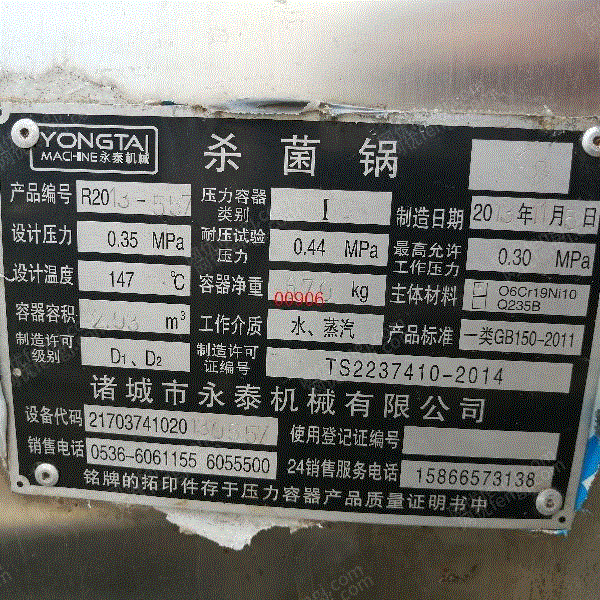 YONGTAI
MACHINE永泰机械
杀菌锅
产品编号 R2013-557
压力容器类别 I
制造日期 2013年11月 日
设计压力 0.35 MPa
耐压试验压力 0.44 MPa
最高允许工作压力 0.30 MPa
设计温度 147 ℃
容器净重 kg
00906
主体材料 O6Cr19Ni10 Q235B
容器容积 2.93 m³
工作介质 水、蒸汽
产品标准 一类GB150-2011
制造许可级别 D₁、D₂
制造许可证编号 TS2237410-2014
诸城市永泰机械有限公司
设备代码 21703741020
使用登记证编号
销售电话 0536-6061155 6055500
24销售服务电话 15866573138
铭牌的拓印件存于压力容器产品质量证明书中